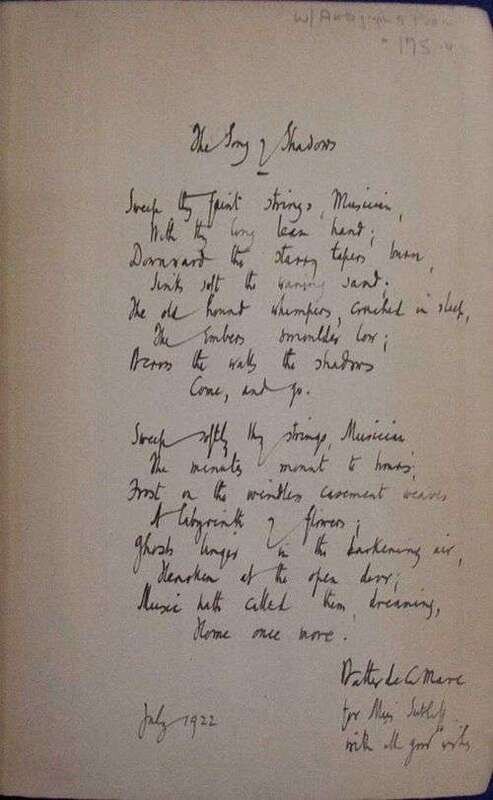 w/ Autograph Poem
175.00
The Song of Shadows
Sweep thy faint strings, Musician,
With thy long lean hand;
Downward the starry tapers burn,
Sinks soft the waning sand;
The old hound whimpers, couched in sleep,
The Embers smoulder low;
Across the walls the shadows
Come, and go.
Sweep softly thy strings, Musician
The minutes mount to hours;
Frost on the windless casement weaves
A labyrinth of flowers;
Ghosts linger in the darkening air,
Hearken at the open door;
Music hath called them, dreaming,
Home once more.
Walter de la Mare
for Miss Sutcliff
with all good wishes
July 1922